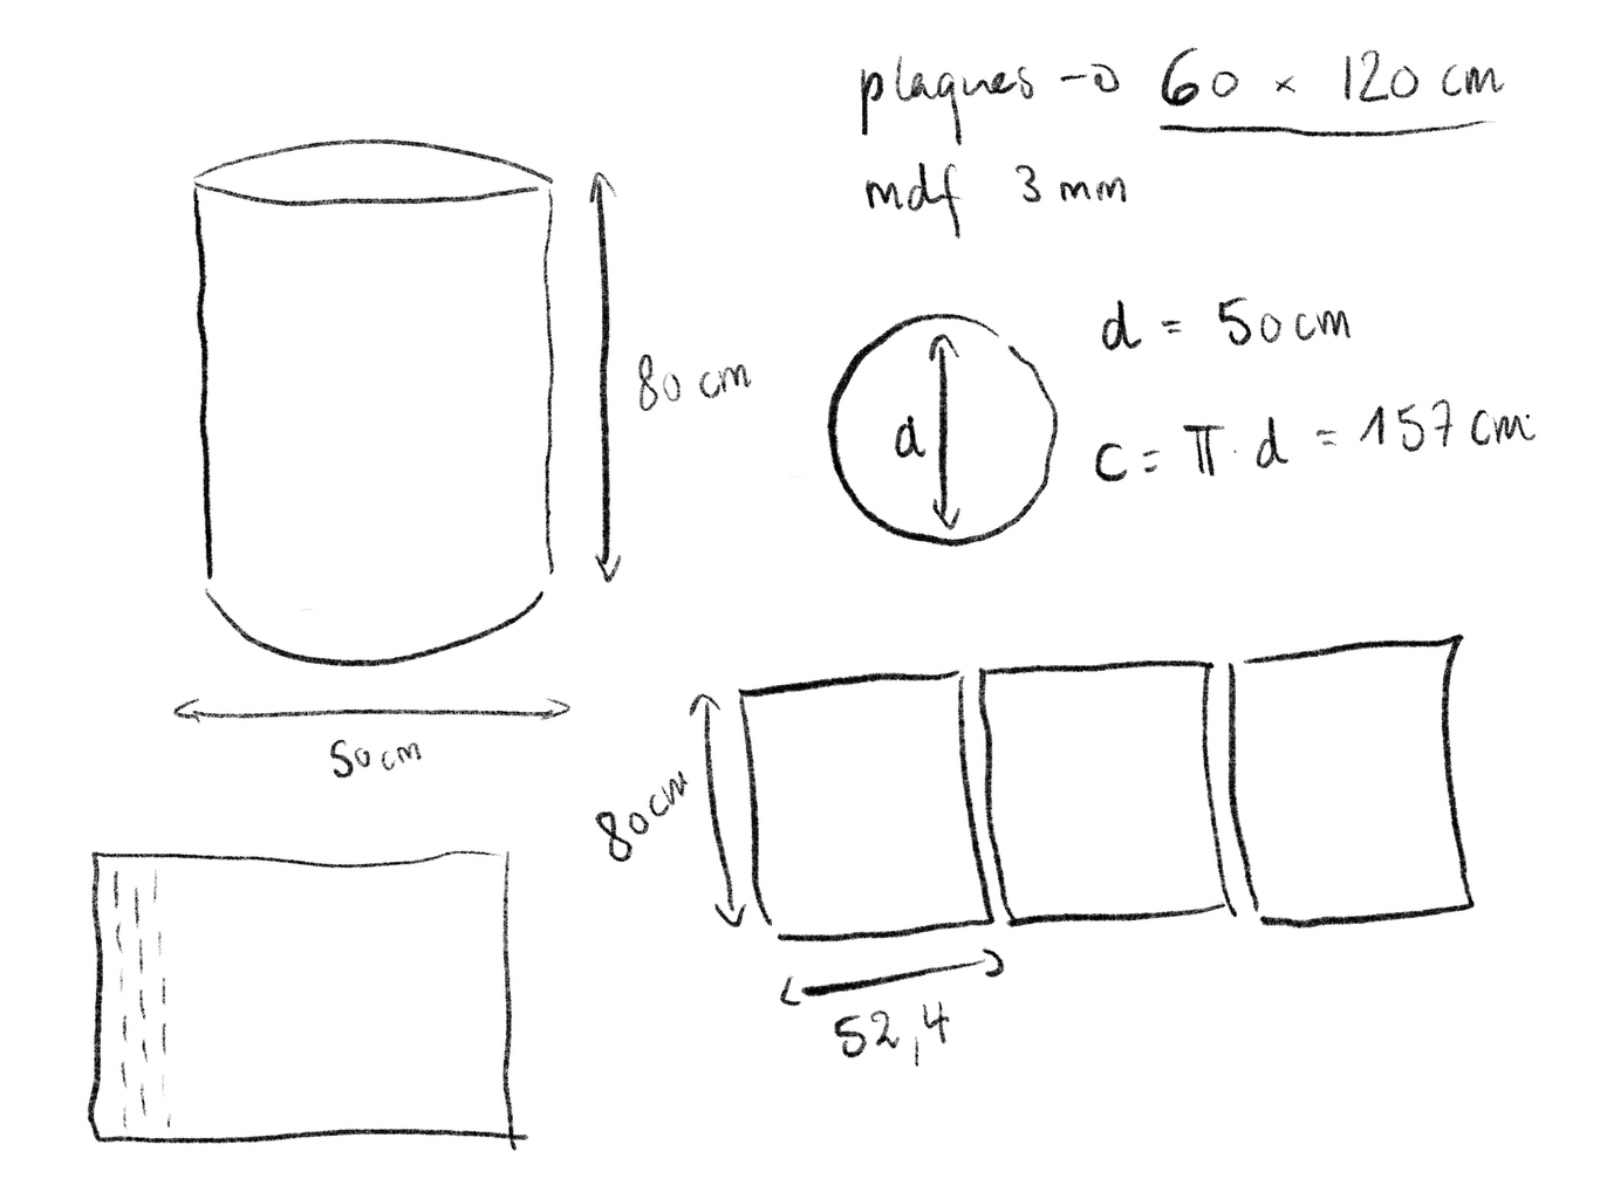 plaques → 60 × 120 cm
mdf 3 mm
80 cm
50 cm
d
d = 50 cm
c = π · d = 157 cm
80 cm
52,4